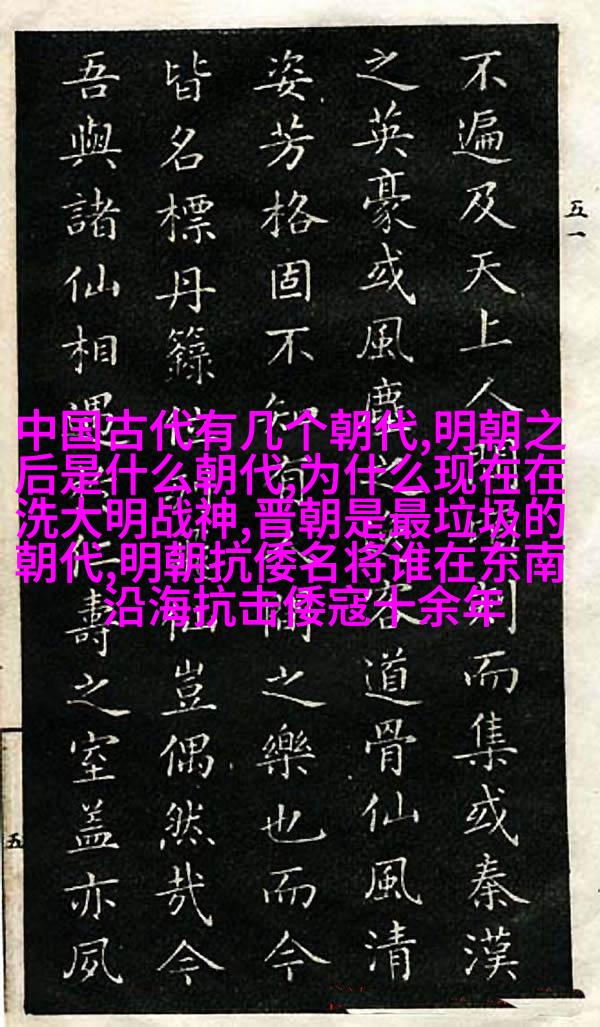 中国古代有几个朝代,明朝之
后是什么朝代,为什么现在在
洗大明战神,晋朝是最垃圾的
朝代,明朝抗倭名将谁在东南
沿海抗击倭寇十余年
五一
不遍及天上人間而集或秦漢
之英豪或風塵之客道骨仙風清
姿芳格固不知有間之樂也而今
皆名標丹籙位仙豈偶然哉今
吾與諸仙相遇仁壽之室蓋亦夙
五